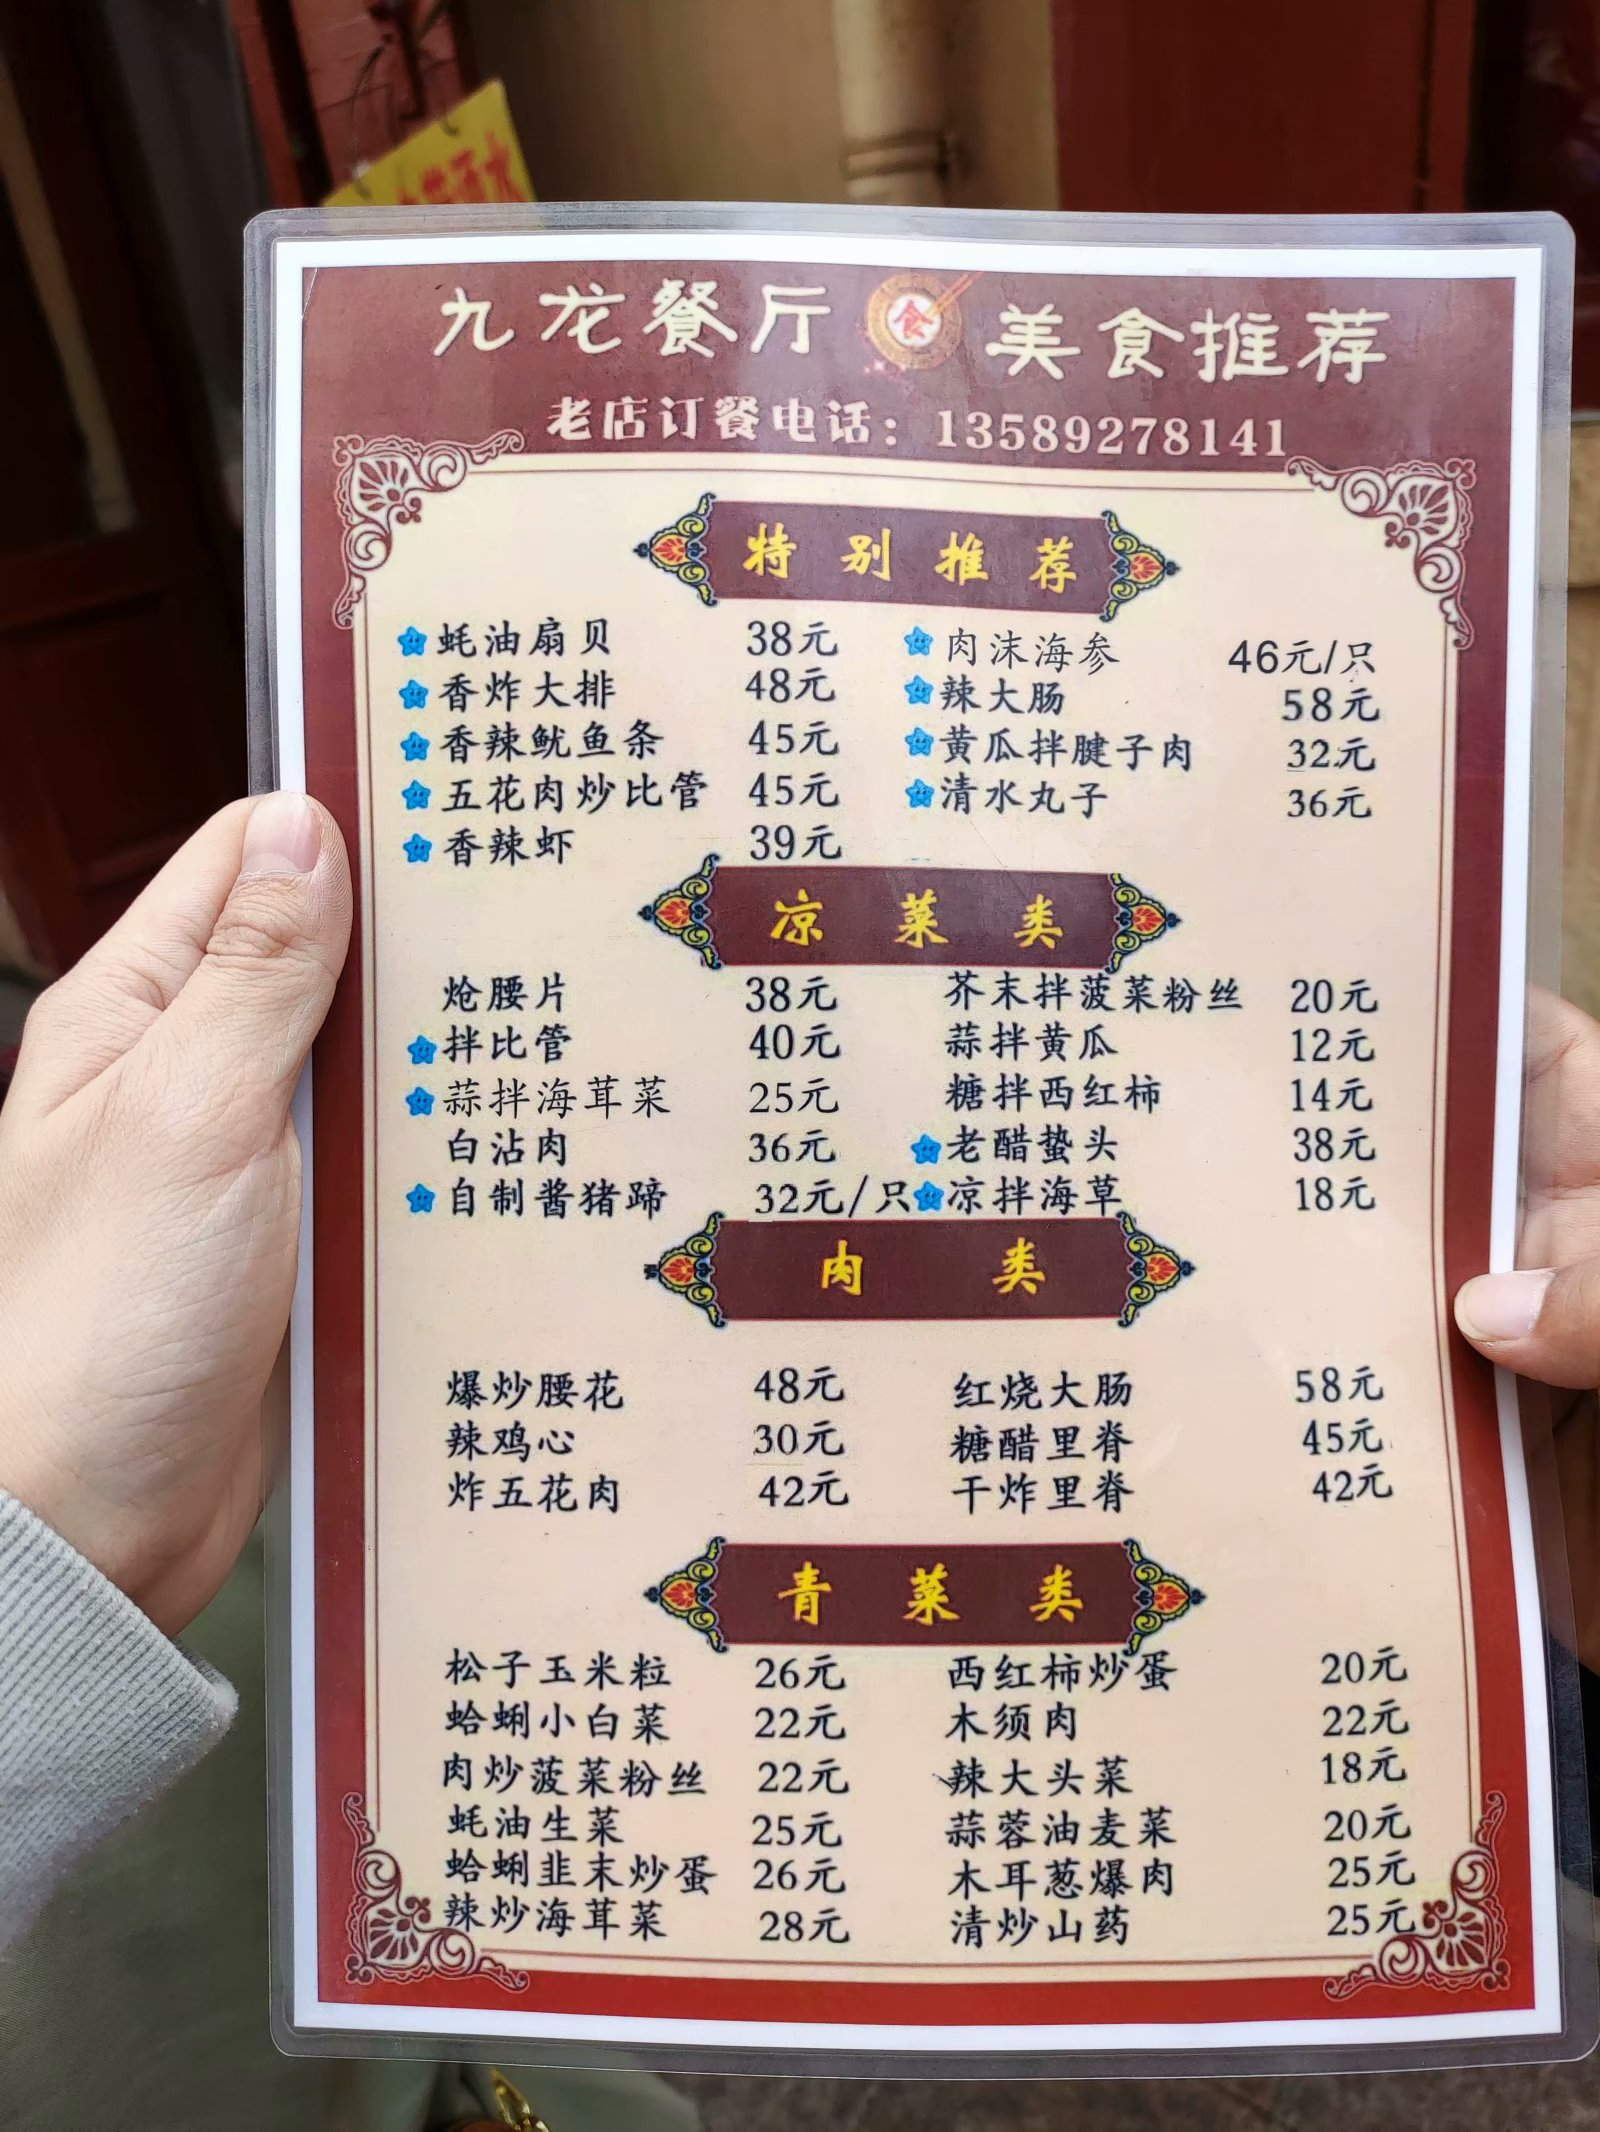 九龙餐厅 食 美食推荐
老店订餐电话：13589278141
特别推荐
蚝油扇贝 38元 肉沫海参 46元/只
香炸大排 48元 辣大肠 58元
香辣鱿鱼条 45元 黄瓜拌腱子肉 32元
五花肉炒比管 45元 清水丸子 36元
香辣虾 39元
凉菜类
炝腰片 38元 芥末拌菠菜粉丝 20元
拌比管 40元 蒜拌黄瓜 12元
蒜拌海茸菜 25元 糖拌西红柿 14元
白沾肉 36元 老醋蛰头 38元
自制酱猪蹄 32元/只 凉拌海草 18元
肉类
爆炒腰花 48元 红烧大肠 58元
辣鸡心 30元 糖醋里脊 45元
炸五花肉 42元 干炸里脊 42元
青菜类
松子玉米粒 26元 西红柿炒蛋 20元
蛤蜊小白菜 22元 木须肉 22元
肉炒菠菜粉丝 22元 辣大头菜 18元
蚝油生菜 25元 蒜蓉油麦菜 20元
蛤蜊韭末炒蛋 26元 木耳葱爆肉 25元
辣炒海茸菜 28元 清炒山药 25元